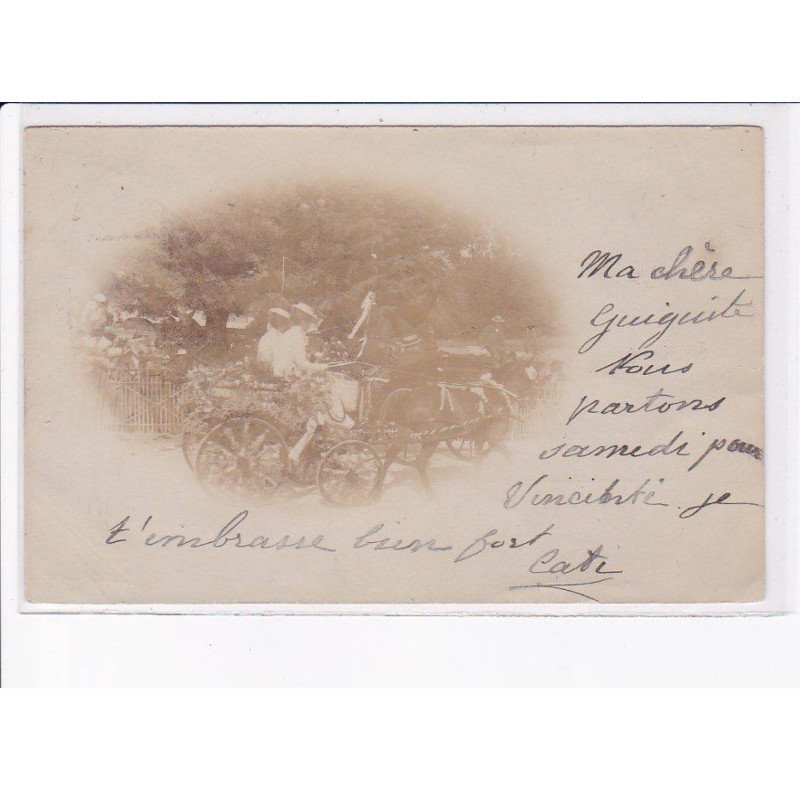 Ma chère
Guiguite
Nous
partons
samedi pour
je
t'embrasse bien fort
Cati